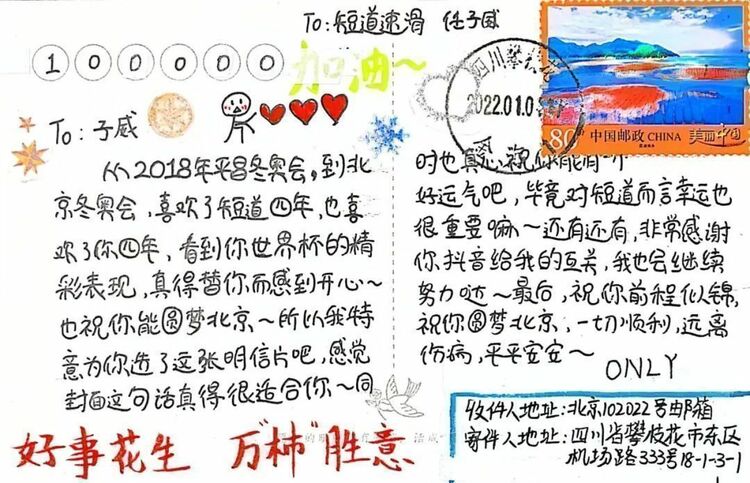 To: 短道速滑 任子威
100000
加油~
四川攀枝花
2022.01.0
80
中国邮政 CHINA
美丽中国
To: 子威
从2018年平昌冬奥会,到北
京冬奥会,喜欢了短道四年,也喜
欢了你四年,看到你世界杯的精
彩表现,真得替你而感到开心~
也祝你能圆梦北京~所以我特
意为你选了这张明信片吧,感觉
封面这句话真得很适合你~同
时也真心祝你能有一个
好运气吧,毕竟对短道而言幸运也
很重要嘛~还有还有,非常感谢
你抖音给我的互关,我也会继续
努力哒~最后,祝你前程似锦,
祝你圆梦北京,一切顺利,远离
伤病,平平安安~
ONLY
好事花生 万“柿”胜意
收件人地址:北京102022号邮箱
寄件人地址:四川省攀枝花市东区
机场路333号18-1-3-1